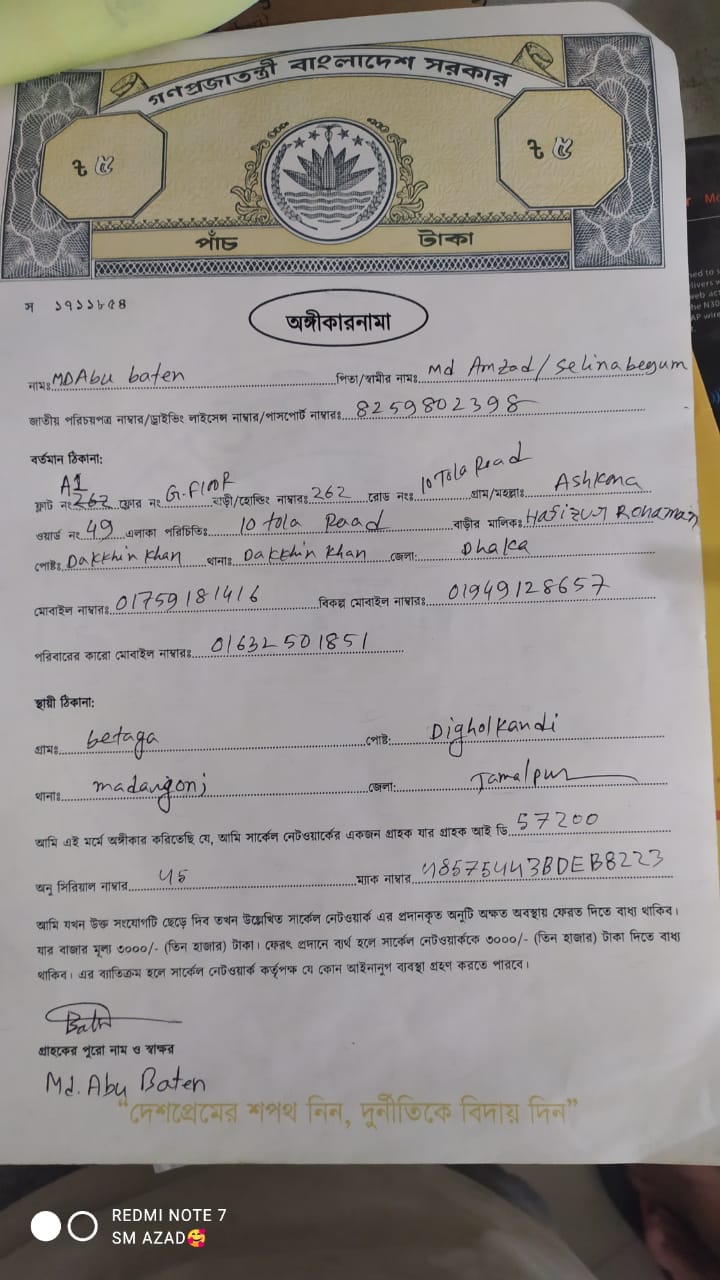 গণপ্রজাতন্ত্রী বাংলাদেশ সরকার
৳ ৫ ৳ ৫
পাঁচ টাকা
স ১৭১১৮৫৪
অঙ্গীকারনামা
নামঃ MD Abu baten পিতা/স্বামীর নামঃ Md Amzad/selina begum
জাতীয় পরিচয়পত্র নাম্বার/ড্রাইভিং লাইসেন্স নাম্বার/পাসপোর্ট নাম্বারঃ 8259802398
বর্তমান ঠিকানা:
ফ্লাট নং A1 262 ফ্লোর নং G.flooR বাড়ী/হোল্ডিং নাম্বারঃ 262 রোড নংঃ 10 Tola Road গ্রাম/মহল্লাঃ Ashkona
ওয়ার্ড নং 49 এলাকা পরিচিতিঃ 10 tola Road বাড়ীর মালিকঃ Hafizur Rohaman
পোষ্টঃ Dakkhin Khan থানাঃ Dakkhin Khan জেলাঃ Dhaka
মোবাইল নাম্বারঃ 01759181416 বিকল্প মোবাইল নাম্বারঃ 01949128657
পরিবারের কারো মোবাইল নাম্বারঃ 01632501851
স্থায়ী ঠিকানা:
গ্রামঃ betaga পোষ্ট: Digholkandi
থানাঃ madangonj জেলা: Jamalpur
আমি এই মর্মে অঙ্গীকার করিতেছি যে, আমি সার্কেল নেটওয়ার্কের একজন গ্রাহক যার গ্রাহক আই ডি 57200
অনু সিরিয়াল নাম্বার 45 ম্যাক নাম্বার 485754443BDEB8223
আমি যখন উক্ত সংযোগটি ছেড়ে দিব তখন উল্লেখিত সার্কেল নেটওয়ার্ক এর প্রদানকৃত অনুটি অক্ষত অবস্থায় ফেরত দিতে বাধ্য থাকিব।
যার বাজার মূল্য ৩০০০/- (তিন হাজার) টাকা। ফেরৎ প্রদানে ব্যর্থ হলে সার্কেল নেটওয়ার্ককে ৩০০০/- (তিন হাজার) টাকা দিতে বাধ্য
থাকিব। এর ব্যতিক্রম হলে সার্কেল নেটওয়ার্ক কর্তৃপক্ষ যে কোন আইনানুগ ব্যবস্থা গ্রহণ করতে পারবে।
Baten
গ্রাহকের পুরো নাম ও স্বাক্ষর
Md. Abu Baten
“দেশপ্রেমের শপথ নিন, দুর্নীতিকে বিদায় দিন”
REDMI NOTE 7
SM AZAD🥰